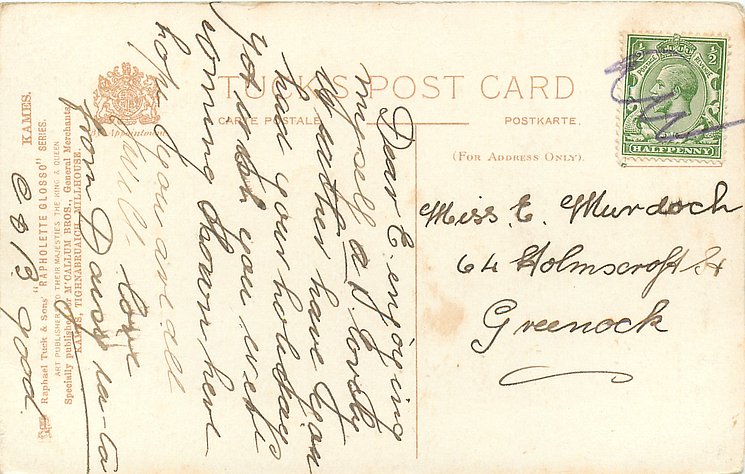 TUCK'S POST CARD
CARTE POSTALE
POSTKARTE.
(FOR ADDRESS ONLY).
By Appointment
½ ½
POSTAGE
HALFPENNY
Miss E. Murdoch
64 Holmscroft St
Greenock
Dear E enjoying
myself a 1 lovely
weather have you
had your holiday
yet wish you were
coming down here
hope you are all
well love
from Daisy ta-ta
be good
KAMES.
Raphael Tuck & Sons' "RAPHOLETTE GLOSSO" SERIES.
ART PUBLISHERS TO THEIR MAJESTIES THE KING & QUEEN
Specially published for McCALLUM BROS., General Merchants
KAMES, TIGHNABRUAICH, MILLHOUSE.